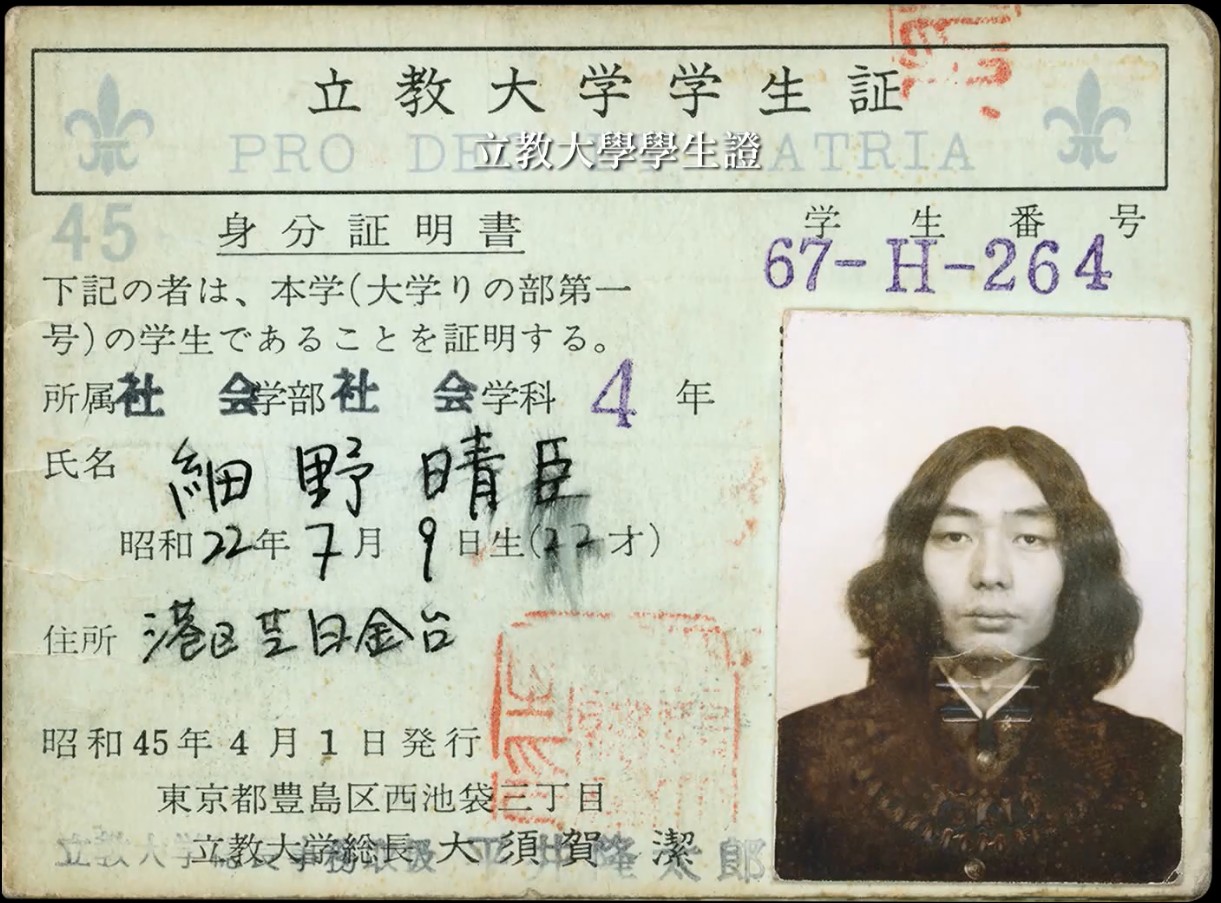 立教大学学生証
PRO DE ATRIA
立教大學學生證
45
身分証明書
学生番号
67-H-264
下記の者は、本学(大学りの部第一
号)の学生であることを証明する。
所属 社会学部 社会学科 4年
氏名 細野晴臣
昭和22年7月9日生(22才)
住所 港区芝白金台
昭和45年4月1日発行
東京都豊島区西池袋三丁目
立教大学総長 大須賀 潔